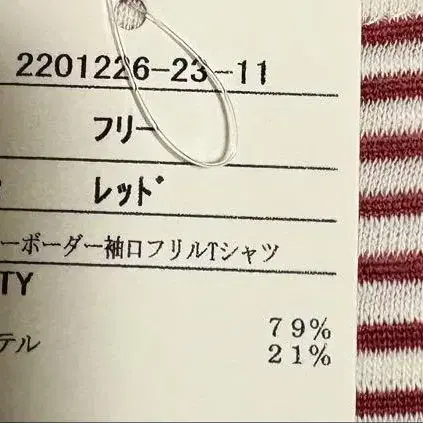 2201226-23-11
フリー
レッド
ーボーダー袖口フリルTシャツ
TY
79%
テル 21%